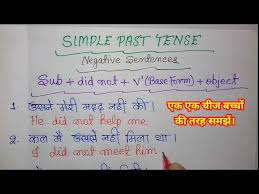 SIMPLE PAST TENSE
Negative Sentences
Sub + did not + V¹ (Base Form) + object
1. उसने मेरी मदद नहीं की।
He did not help me
एक एक चीज बच्चों
की तरह समझें।
2. कल मैं उससे नहीं मिला था।
I did not meet him